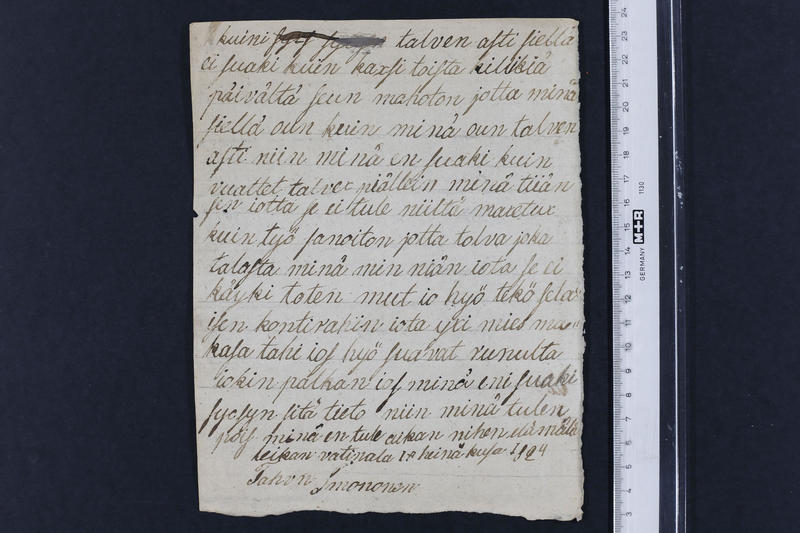 kuini talven asti siellä
ei suaki kuin kaxsi toista killikiä
päivältä seun mahoton jotta minä
siellä oun kuin minä oun talven
asti niin minä en suaki kuin
vuattet talvec niällein minä tiiän
sen iotta se ei tule niiltä maxetux
kuin työ sanoiton jotta tolva joka
talosta minä min niän iota se ei
käyki toten mut io hyö tekö sela=
isen kontirahin iota yxi mies ma=
kasa tahi ios hyö suavat runulta
iokin palkan ios minä eni suaki
syssyn sitä tieto niin minä tulen
pois minä en tule aikan nihen elämällä
leikan vatinala 18 heinä kusa
Tahvn Imononen
24
23
22
21
20
19
18
17
16
15
14
13
12
11
10
9
8
7
6
5
4
3
GERMANY M+R 1130